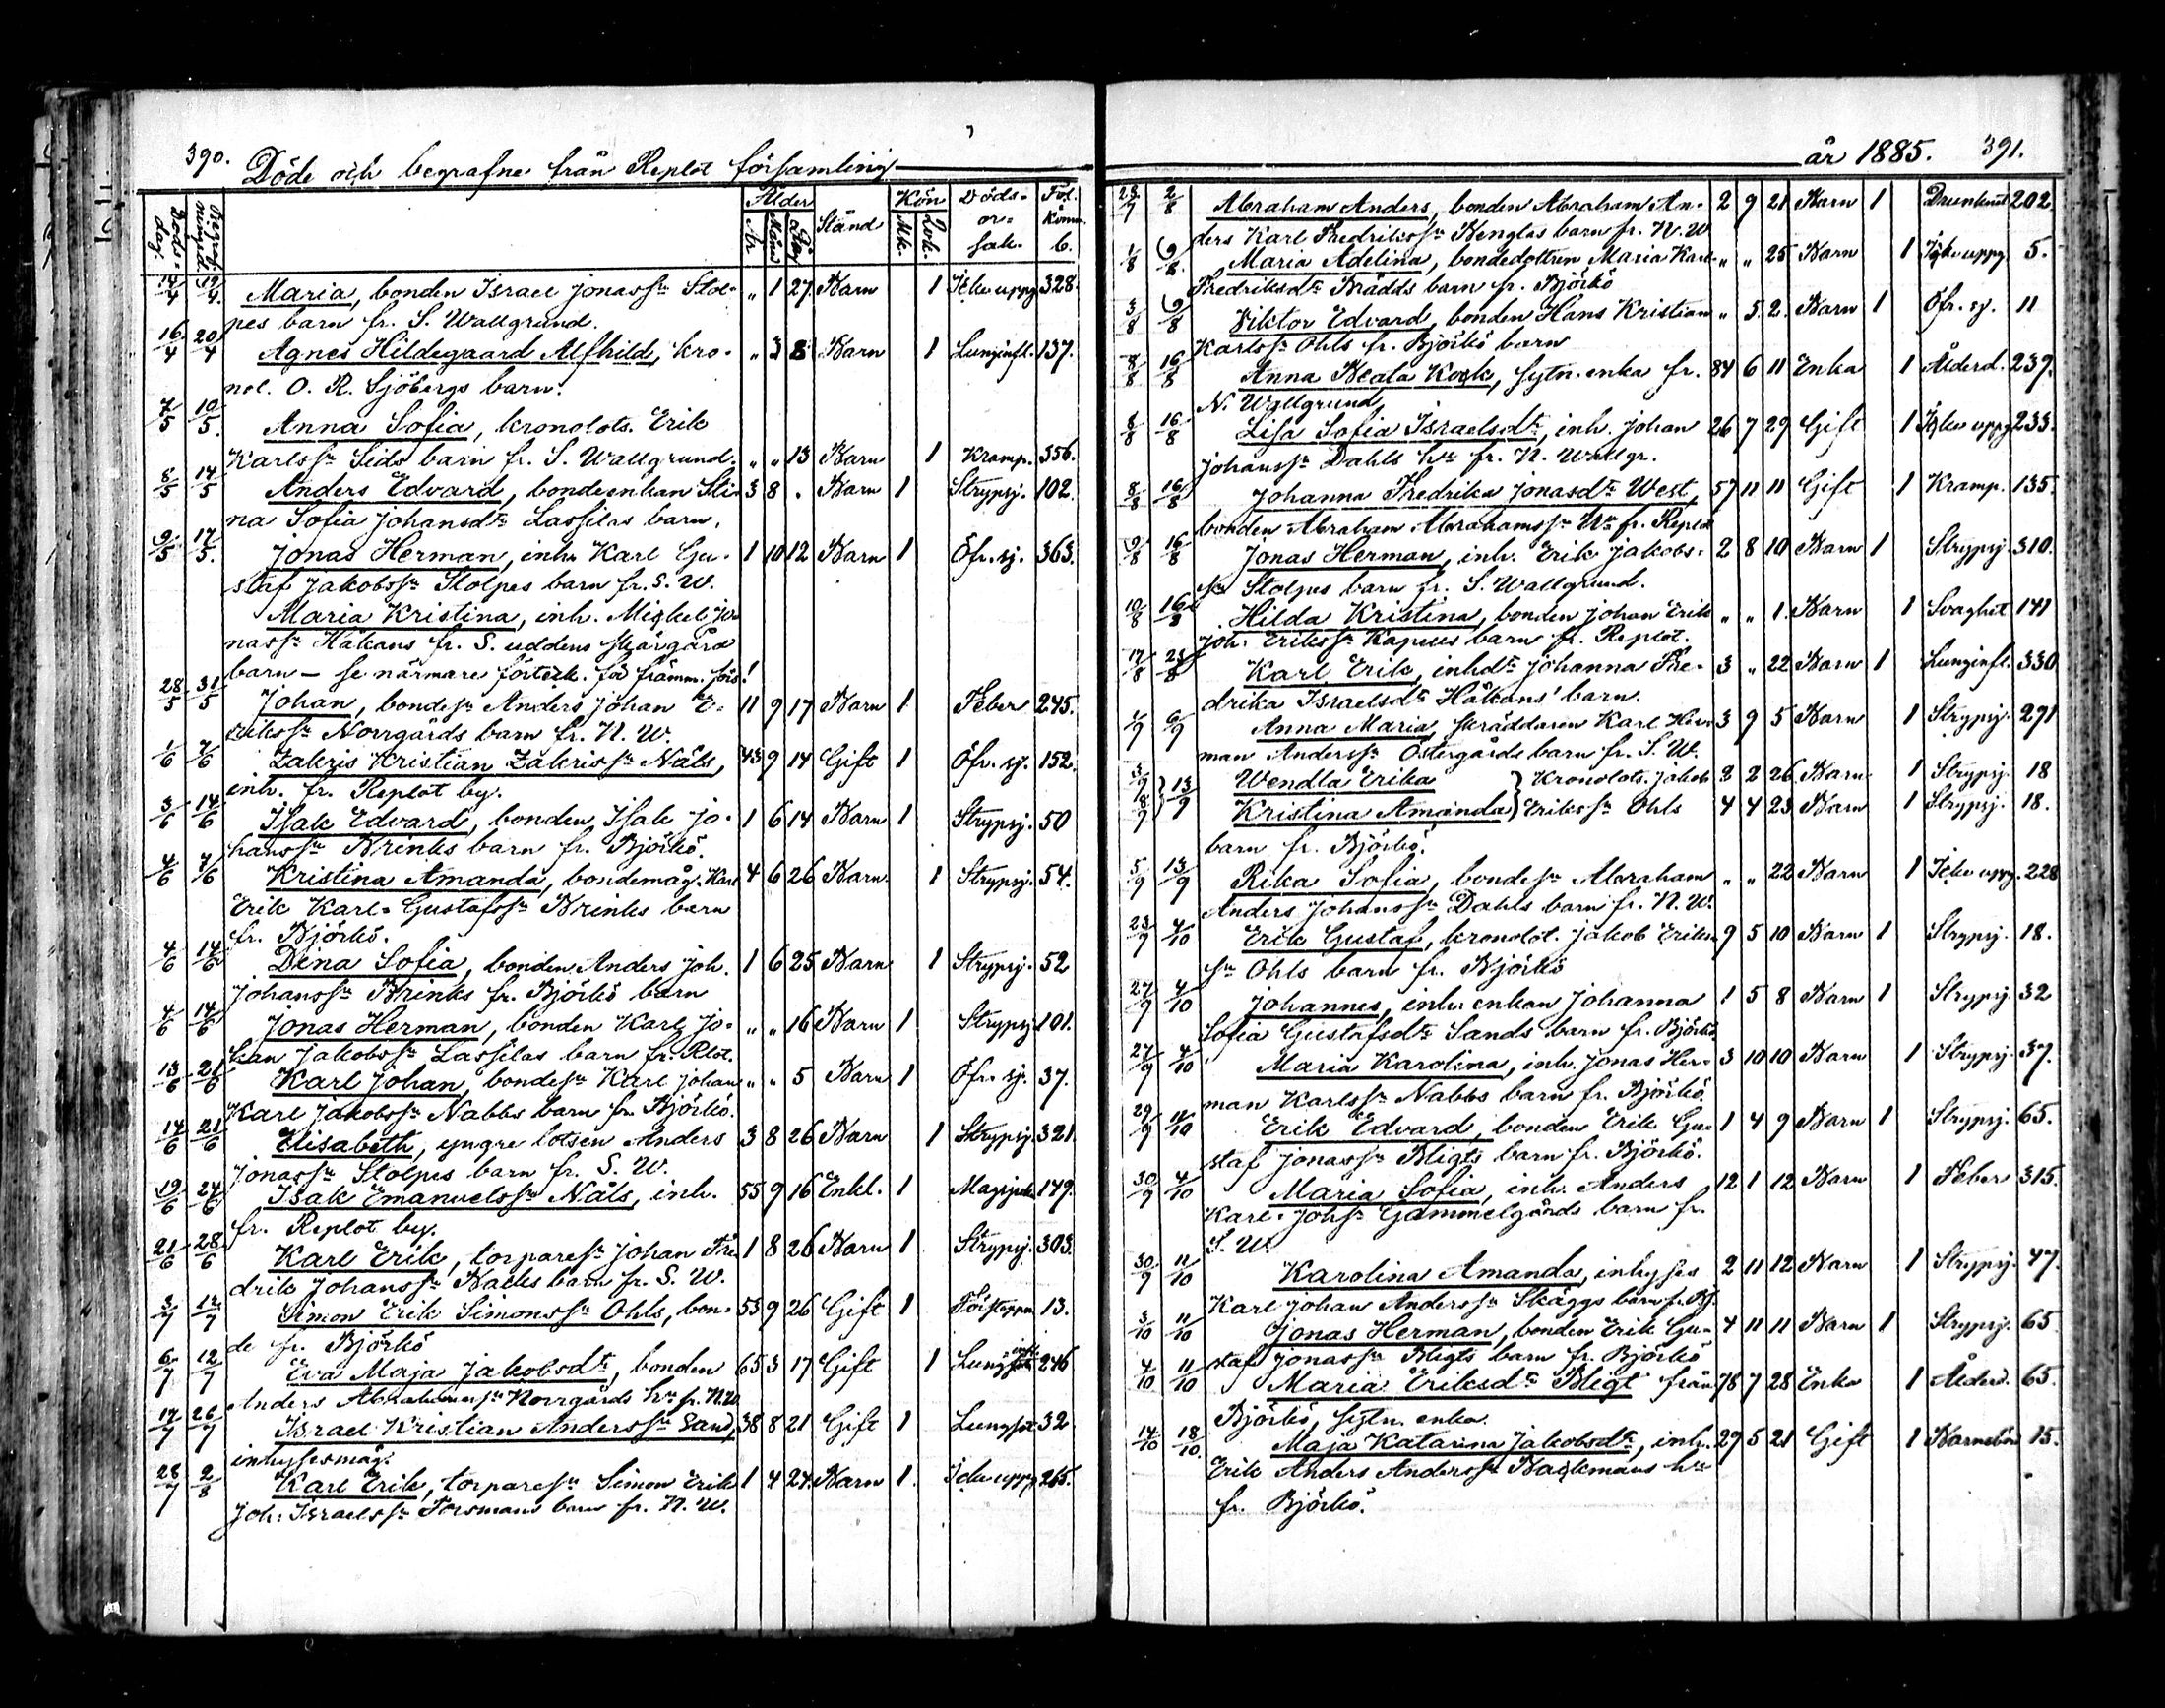 390. Döde och begrafne från Replot församling
Döds-dag. Begrafningsd. Ålder År Mån. Dag Stånd Kön Mk. Qvk. Döds-or-sak. Fol. Komm. b.
14/4 19/4. Maria, bonden Israel Jonasss:n Stol- „ 1 27. Barn 1 Icke uppg. 328.
pes barn fr. S. Wallgrund.
16/4 20/4 Agnes Hildegaard Alfhild, kro- „ 3 8 Barn 1 Lunginfl. 137.
nol. O. R. Sjöbergs barn.
7/5 10/5. Anna Sofia, kronolots. Erik
Karlss:n Sids barn fr. S. Wallgrund. „ „ 13 Barn 1 Kramp. 356.
8/5 14/5 Anders Edvard, bondeenkan Sti- 3 8 . Barn 1 Strypsj. 102.
na Sofia Johansd:r Lassilas barn.
9/5 17/5. Jonas Herman, inh. Karl Gu- 1 10 12 Barn 1 Öfr. sj. 363.
staf Jakobss:n Stolpes barn fr. S. W.
Maria Kristina, inh. Mickel Jo-
nass:n Håkans fr. S. uddens skärgård
barn – se närmare förteck. för främm. förs!
28/5 31/5 Johan, bondes:n Anders Johan E- 11 9 17 Barn 1 Feber 245.
rikss:n Norrgårds barn fr. N. W.
1/6 7/6 Zakris Kristian Zakriss:n Näls, 43 9 14 Gift 1 Öfr. sj. 152.
inh. fr. Replot by.
3/6 14/6 Isak Edvard, bonden Isak Jo- 1 6 14 Barn 1 Strypsj. 50
hanss:n Brinks barn fr. Björkö.
4/6 7/6 Kristina Amanda, bondemåg. Karl 4 6 26 Barn. 1 Strypsj. 54.
Erik Karl-Gustafss:n Brinks barn
fr. Björkö.
4/6 14/6 Dena Sofia, bonden Anders Joh. 1 6 25 Barn 1 Strypsj. 52
Johanss:n Brinks fr. Björkö barn
4/6 14/6 Jonas Herman, bonden Karl Jo- „ „ 16 Barn 1 Strypsj. 101.
han Jakobss:n Lassilas barn fr. Rlot.
13/6 21/6 Karl Johan, bondes:n Karl Johan „ „ 5 Barn 1 Öfr. sj. 37.
Karl Jakobss:n Nabbs barn fr. Björkö.
14/6 21/6 Elisabeth, yngre lotsen Anders 3 8 26 Barn 1 Strypsj. 321
Jonass:n Stolpes barn fr. S. W.
19/6 24/6 Isak Emanuelss:n Näls, inh. 55 9 16 Enkl. 1 149.
fr. Replot by.
21/6 28/6 Karl Erik, torpares:n Johan Fre- 1 8 26 Barn 1 Strypsj. 303.
drik Johanss:n Backs barn fr. S. W.
3/7 12/7 Simon Erik Simonss:n Ohls, bon- 53 9 26 Gift 1 Förstoppn. 13.
de fr. Björkö
6/7 12/7 Eva Maja Jakobsd:r, bonden 65 3 17 Gift 1 246
Anders Abrahamss:n Norrgårds h:u fr. N. W.
17/7 26/7 Israel Kristian Anderss:n Sand, 38 8 21 Gift 1 Lungsot 32.
inhysesmåg.
28/7 2/8 Karl Erik, torpares:n Simon Erik 1 4 24. Barn 1. Icke uppg. 265.
Joh: Israelss:n Forsmans barn fr. N. W.
år 1885. 391.
23/7 2/8 Abraham Anders, bonden Abraham An- 2 9 21 Barn 1 Drunknad 202.
ders Karl Fredrikss:n Benglas barn fr. N. W.
1/8 9/8. Maria Adelina, bondedottren Maria Karl- „ „ 25 Barn 1 Icke uppg. 5.
Fredriksd:r Brädds barn fr. Björkö
3/8 9/8 Viktor Edvard, bonden Hans Kristian „ 5. 2. Barn 1 Öfr. sj. 11
Karlss:n Ohls fr. Björkö barn
8/8 16/8 Anna Beata Kock, sytn. enka fr. 84 6 11 Enka 1 Ålderd. 239.
N. Wallgrund
8/8 16/8 Lisa Sofia Israelsd:r, inh. Johan 26 7 29 Gift 1 Icke uppg. 233.
Johanss:n Dahls h:u fr. N. Wallgr.
8/8 16/8 Johanna Fredrika Jonasd:r West, 57 11 11 Gift 1 Kramp. 135.
bonden Abraham Abrahamss:n H:u fr. Replot
9/8 16/8 Jonas Herman, inh. Erik Jakobs- 2 8 10 Barn 1 Strypsj. 310.
s:n Stolpes barn fr. S. Wallgrund.
10/8 16/8 Hilda Kristina, bonden Johan Erik „ „ 1. Barn 1 Svaghet 141
Joh. Erikss:n Kapells barn fr. Replot.
17/8 23/8 Karl Erik, inhd:r Johanna Fre- 3 „ 22 Barn 1 Lunginfl. 330
drika Israelsd:r Håkans' barn.
1/9 6/9 Anna Maria, skräddaren Karl Her- 3 9 5 Barn 1 Strypsj. 291
man Anderss:n Östergårds barn fr. S. W.
3/9 } 13/9 Wendla Erika } Kronolots. Jakob 2 2 26 Barn 1 Strypsj. 18
18/9 Kristina Amanda } Erikss:n Ohls 4 4 23 Barn 1 Strypsj. 18.
barn fr. Björkö.
5/9 13/9 Rika Sofia, bondes:n Abraham „ „ 22 Barn 1 Icke uppg. 228
Anders Johanss:n Dahls barn fr. N. W.
23/9 4/10 Erik Gustaf, kronolot. Jakob Eriks- 9 5 10 Barn 1 Strypsj. 18.
s:n Ohls barn fr. Björkö
27/9 4/10 Johannes, inh. enkan Johanna 1 5 8 Barn 1 Strypsj. 32
Sofia Gustafsd:r Sands barn fr. Björkö
27/9 4/10 Maria Karolina, inh. Jonas Her- 3 10 10 Barn 1 Strypsj. 37.
man Karlss:n Nabbs barn fr. Björkö.
29/9 4/10 Erik Edvard, bonden Erik Gu- 1 4 9 Barn 1 Strypsj. 65.
staf Jonass:n Bligts barn fr. Björkö.
30/9 4/10 Maria Sofia, inh. Anders 12 1 12 Barn 1 Feber 315.
Karl-Johs:n Gammelgårds barn fr.
S. W.
30/9 11/10 Karolina Amanda, inhyses 2 11 12 Barn 1 Strypsj. 47.
Karl Johan Anderss:n Skäggs barn fr. Bj.
3/10 11/10 Jonas Herman, bonden Erik Gu- 4 11 11 Barn 1 Strypsj. 65
staf Jonass:n Bligts barn fr. Björkö
4/10 11/10 Maria Eriksd:r Bligt från 78 7 28 Enka 1 Ålderd. 65.
Björkö, sytn. enka.
14/10 18/10. Maja Katarina Jakobsd:r, inh. 29 5 21 Gift 1 Barnsbörd 15.
Erik Anders Anderss:n Backmans h:u
fr. Björkö.